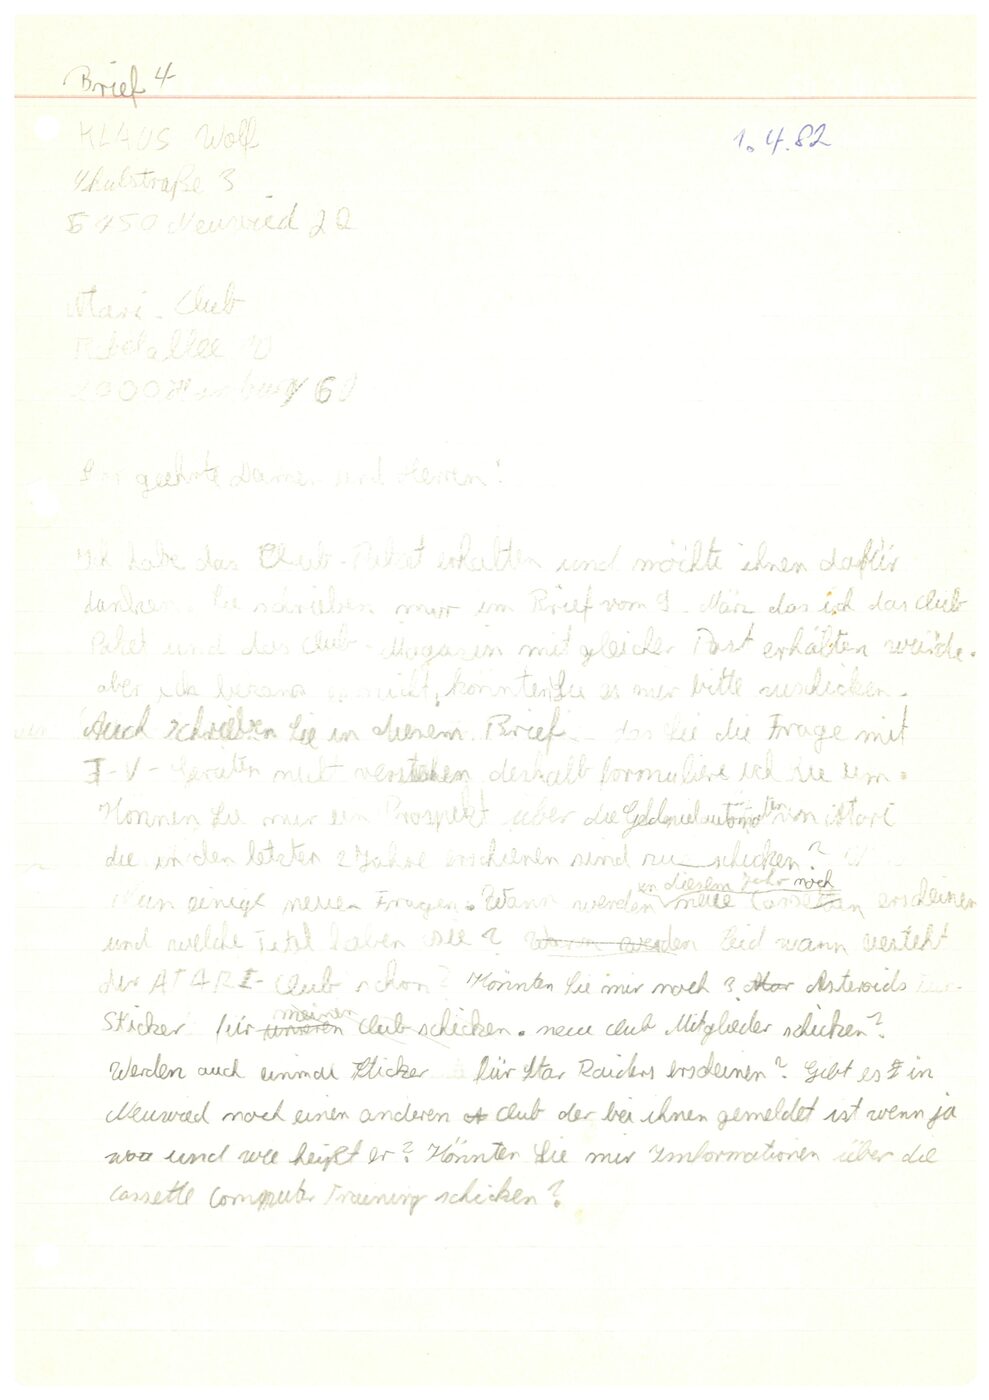 Brief 4
KLAUS Wolf
1.4.82
Schulstraße 3
5450 Neuwied 20
Atari-Club
Bebelallee 10
2000 Hamburg 60
geehrte Damen und Herren!
Ich habe das Club-Paket erhalten und möchte ihnen dafür
danken. Sie schrieben mir im Brief vom 9. März das ich das Club
Paket und das Club-Magazin mit gleicher Post erhalten würde.
aber ich bekam es nicht, könnten Sie es mir bitte zuschicken.
Auch schrieben Sie in diesem Brief das Sie die Frage mit
T-V-Geräten nicht verstehen deshalb formuliere ich sie um.
Können Sie mir ein Prospekt über die Geldspielautomaten von Atari
die in den letzten 2 Jahre erschienen sind zu schicken?
in diesem Jahr noch
Nun einige neuen Fragen. Wann werden neue Cassetten erscheinen
und welche Titel haben sie? Warum werden Seid wann besteht
der ATARI-Club schon? Könnten Sie mir noch 3 Star Asteroids
meinen
Sticker für unseren Club schicken. neue Club Mitglieder schicken?
Werden auch einmal Sticker für Star Raiders erscheinen? Gibt es in
Neuwied noch einen anderen Club der bei ihnen gemeldet ist wenn ja
woo und wie heißt er? Könnten Sie mir Imformationen über die
Cassette Computer Training schicken?